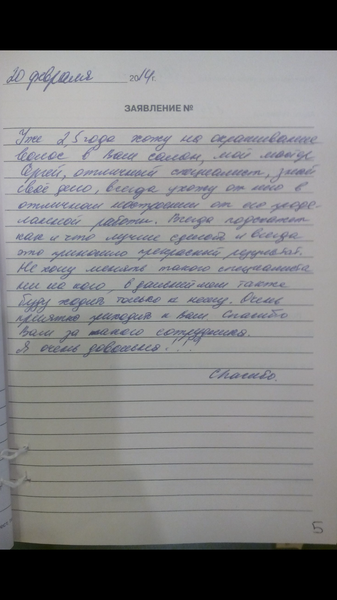 20 февраля 2014г.
ЗАЯВЛЕНИЕ №
Уже 2,5 года хожу на окрашивание
волос в Ваш салон, мой мастер
Сергей, отличный специалист, знает
своё дело, всегда ухожу от него в
отличном настроении от его проде
ланной работы. Всегда подскажет
как и что лучше сделать и всегда
это приносило прекрасный результат.
Не хочу менять такого специалиста
ни на кого, в дальнейшем также
буду ходить только к нему. Очень
приятно приходить к Вам. Спасибо
Вам за такого сотрудника.
Я очень довольна!!!!
Спасибо.
5